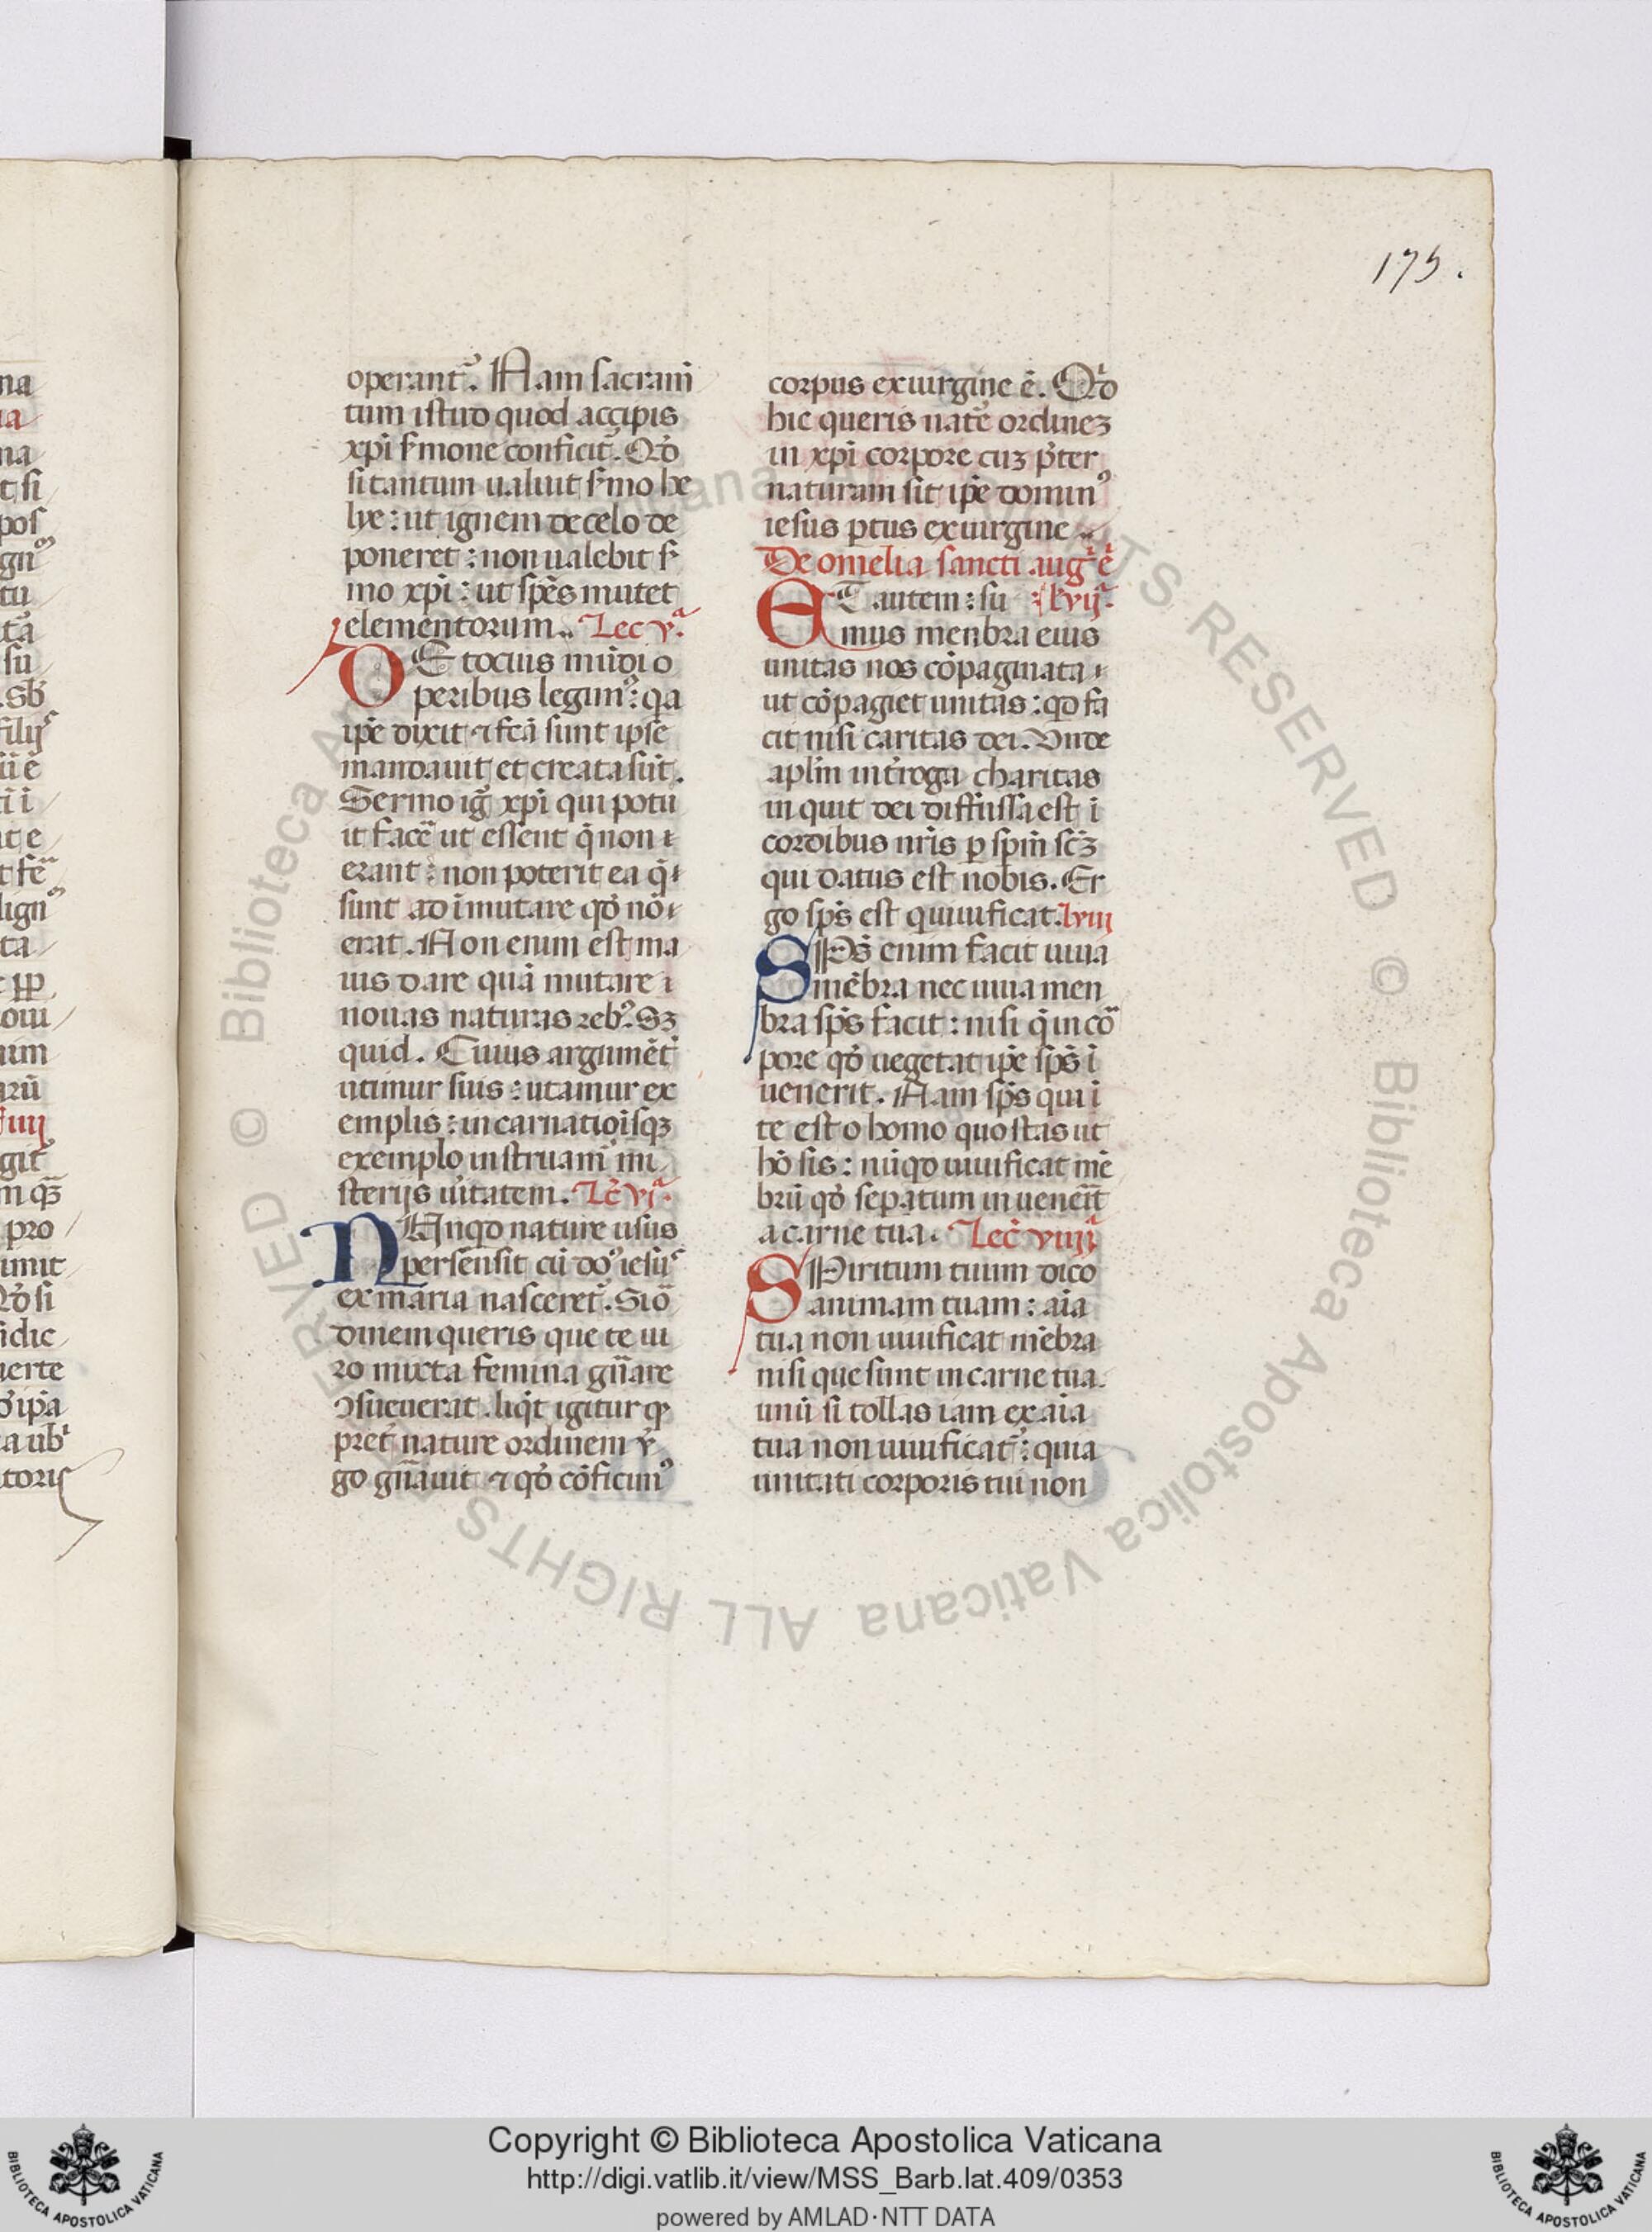 175.
operant᷑. Nam sacram̄
tum istud quod accipis
xp̄i s̄mone conficit᷑. Qd̓
si tantum ualuit s̄mo he
lye: ut ignem de celo de
poneret: non ualebit s̄
mo xp̄i: ut sp̄es mutet
elementorum. Lec vᵃ.
DE totius mūdi o
peribus legimꝰ: qa
ip̄e dixit ⁊ fcā sunt ipse
mandauit et creata sūt.
Sermo ig̓ xp̄i qui potu
it facē ut essent q̇ non
erant: non poterit ea q̇
sunt ad īmutare qd̓ nō
erat. Non enim est ma
uis dare quā mutare
nouas naturas rebꝰ. Sꝫ
quid. Cuius argumēt̄
utimur suis: utamur ex
emplis: incarnatiōīsqꝫ
exemplo instruam̄ mi
sterijs u̓itatem. Lc̄ vjᵃ.
NUnqd nature usus
persensit cū do᷒ iesuˢ
ex maria nasceret᷑. Si o᷑
dinem queris que te ui
ro mixta femina gn̄are
ↄsueuerat. liq̇t igitur ꝙ
pret̓ nature ordinem v̓
go gn̄auit ⁊ qd̓ cōficimꝰ
corpus ex uirgine ē. Qͥd
hic queris nat̄e ordineꝫ
in xp̄i corpore cuꝫ p̄ter
naturam sit ip̄e dominꝰ
iesus ꝑtus ex uirgine
De omelia sancti aug̓ e͛
ET autem: su lc̄ vijᵃ.
mus menbra eius
unitas nos cōpaginata
ut cōpagiet unitas: qd fa
cit nisi caritas dei. Vnde
aplm̄ int̓roga charitas
inquit dei diffussa est ī
cordibus nr̄is ꝑ spm̄ sc̄ꝫ
qui datus est nobis. Er
go sp̄s est qui uiuificat. l viii
SPs̄ enim facit uiua
mēbra nec uiua men
bra sp̄s facit: nisi q̇ in co᷑
pore qd̓ uegetat ip̄e sp̄s ī
uenerit. Nam sp̄s qui ī
te est o homo quo stas ut
hō sis: nūqd uiuificat mē
brū qd̓ sepatum inuenēīt
a carne tua. Lec̄ viiijᵃ
SPiritum tuum dico
animam tuam: aīa
tua non uiuificat mēbra
nisi que sunt in carne tua.
unū si tollas iam ex aīa
tua non uiuificat᷑: quia
unitati corporis tui non
Copyright © Biblioteca Apostolica Vaticana
http://digi.vatlib.it/view/MSS_Barb.lat.409/0353
powered by AMLAD·NTT DATA